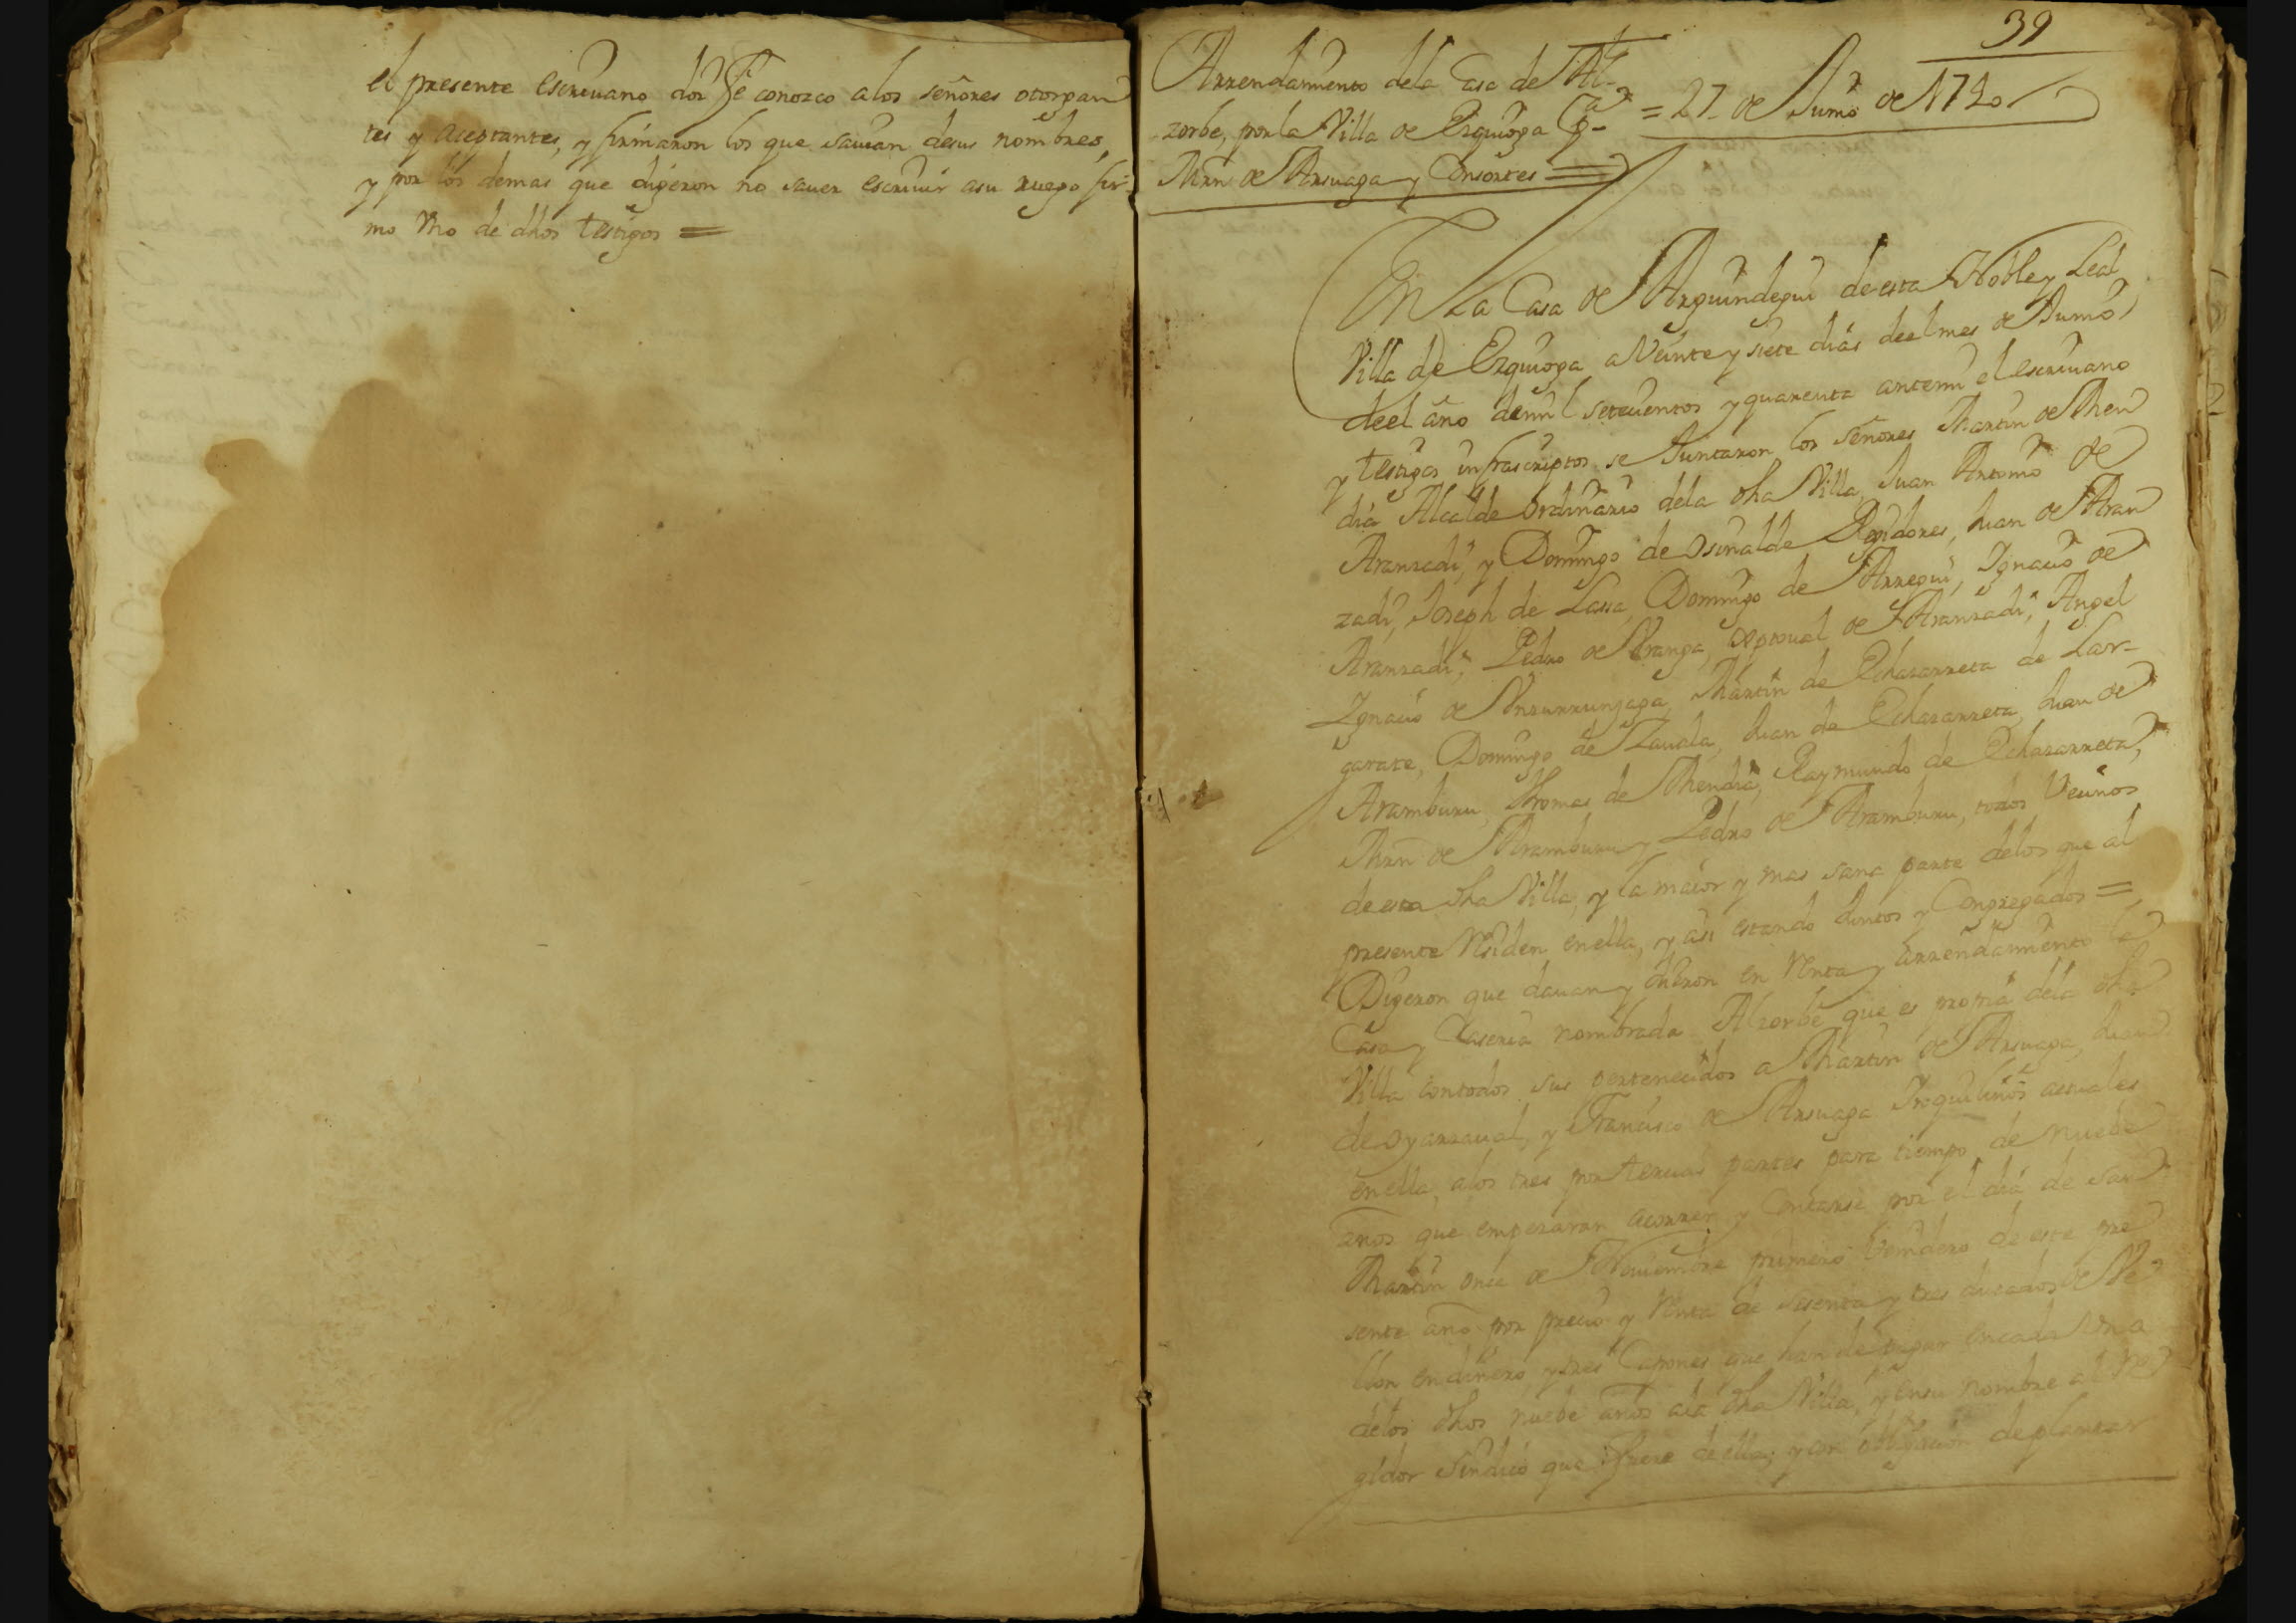 el presente escriuano doi Fe conozco alos señores otorgan
tes y aceptantes, y firmaron los que sauian desus nombres,
y por los demas que digeron no sauer escriuir asu ruego fir
mo Vno de dhos testigos =
39
Arrendamiento dela Casa de Al-
zorbe, por la Villa de Ezquioga
= 27 de Junio de 1740
Mrn de Arsuaga y Consortes =
En La Casa de Arguindegui de esta Noble y Leal
Villa de Ezquioga a Veinte y siete dias deel mes de Junio
deel año demil setecientos y quarenta antemi el escriuano
y testigos infrascriptos se Juntaron los señores Martin de Men
dia Alcalde ordinario dela dha Villa, Juan Antonio de
Aranzadi, y Domingo de Osinalde Regidores, Juan de Aran
zadi, Joseph de Lassa, Domingo de Arregui, Ignacio de
Aranzadi, Pedro de Aranga, de Aranzadi, Angel
Ignacio de Martin de Echazarreta de Lar-
garate, Domingo de Zauala, Juan de Echazarreta, Juan de
Aramburu, Thomas de Mendia, Raymundo de Echazarreta,
Mrn de Aramburu y Pedro de Aramburu, todos Vecinos
de esta dha Villa, y la maior y mas sana parte delos que al
presente Residen enella, y asi estando Juntos y Congregados =
Digeron que dauan y dieron en Renta y arrendamiento la
Casa y Caseria nombrada Alzorbe que es propia dela dha
Villa contodos sus pertenecidos a Martin de Arsuaga, Juan
de Oyarzaual, y Francisco de Arsuaga Inquilinos actuales
enella, alos tres por tercias partes para tiempo de nuebe
años que empezaran acorrer y Contarse por el dia de San
Martin once de Nouiembre primero Venidero de este pre
sente año por precio y Renta de sesenta y tres ducados de Ve
llon endinero, y tres Capones que han de pagar encada Vna
delos dhos nuebe años ala dha Villa, y ensu nombre al Re
gidor Sindico que fuere deella; y con obligacion deplantar